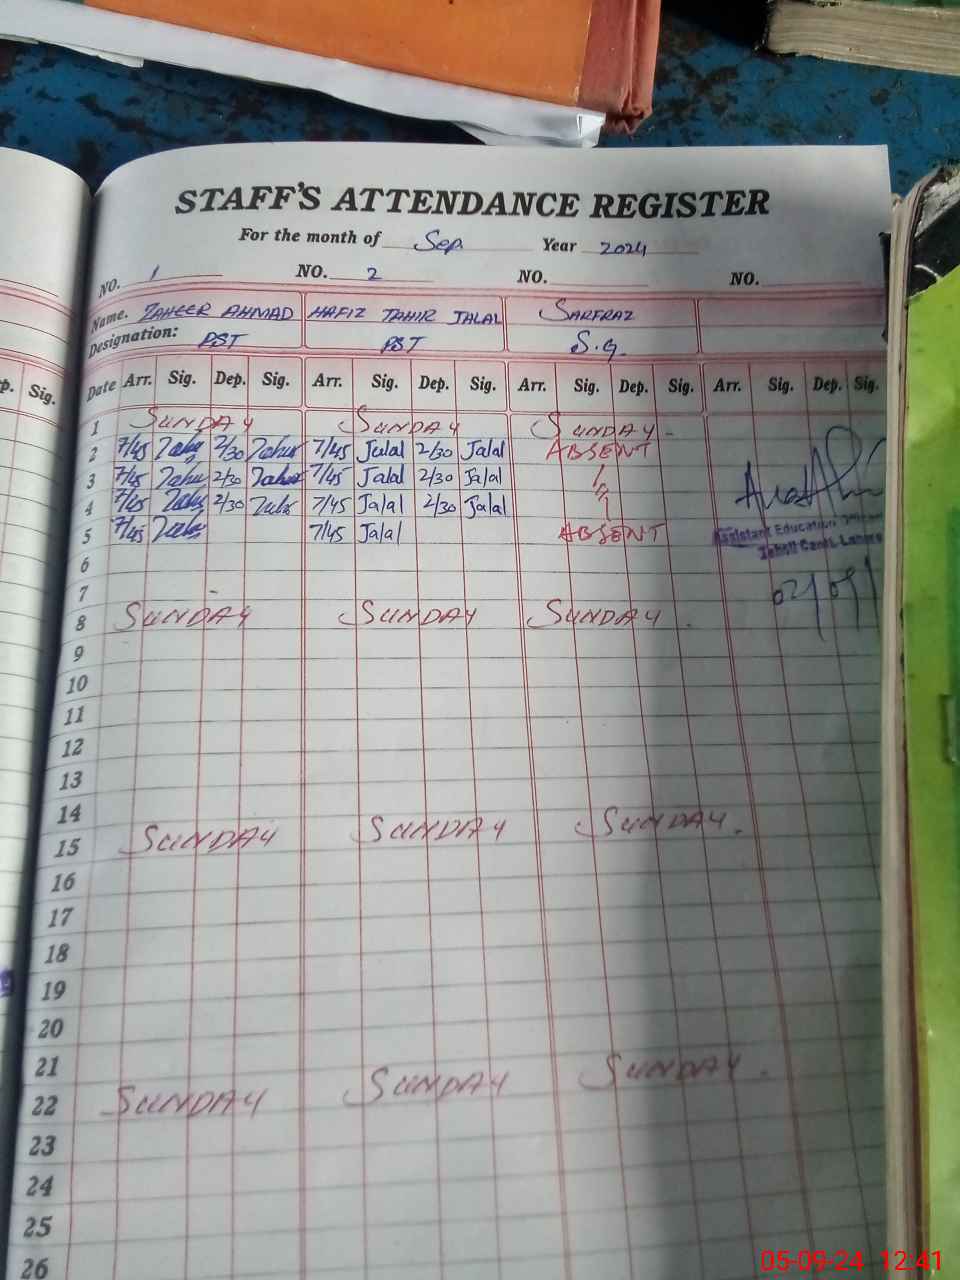 STAFF'S ATTENDANCE REGISTER
For the month of Sep. Year 2024
NO. 1 NO. 2 NO. NO.
Name. ZAHEER AHMAD HAFIZ TAHIR JALAL SARFRAZ
Designation: PST PST S.G.
p. Sig. Date Arr. Sig. Dep. Sig. Arr. Sig. Dep. Sig. Arr. Sig. Dep. Sig. Arr. Sig. Dep. Sig.
1 SUNDAY SUNDAY SUNDAY
2 7/45 2/30 7/45 Jalal 2/30 Jalal ABSENT
3 7/45 2/30 7/45 Jalal 2/30 Jalal
4 7/45 2/30 7/45 Jalal 2/30 Jalal
5 7/45 7/45 Jalal ABSENT
Assistant Education
6
7
8 SUNDAY SUNDAY SUNDAY
9
10
11
12
13
14
15 SUNDAY SUNDAY SUNDAY
16
17
18
19
20
21
22 SUNDAY SUNDAY SUNDAY
23
24
25
26
05-09-24 12:41